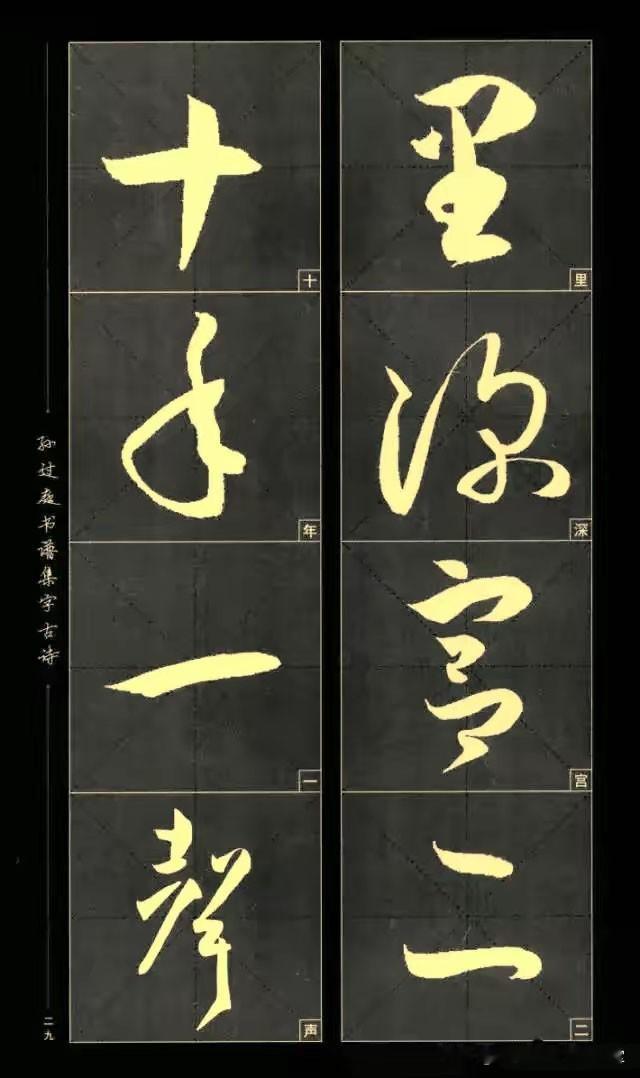 里深宫二
里
深
宫
二
十年一聲
十
年
一
声
孙过庭书谱集字古诗
二九